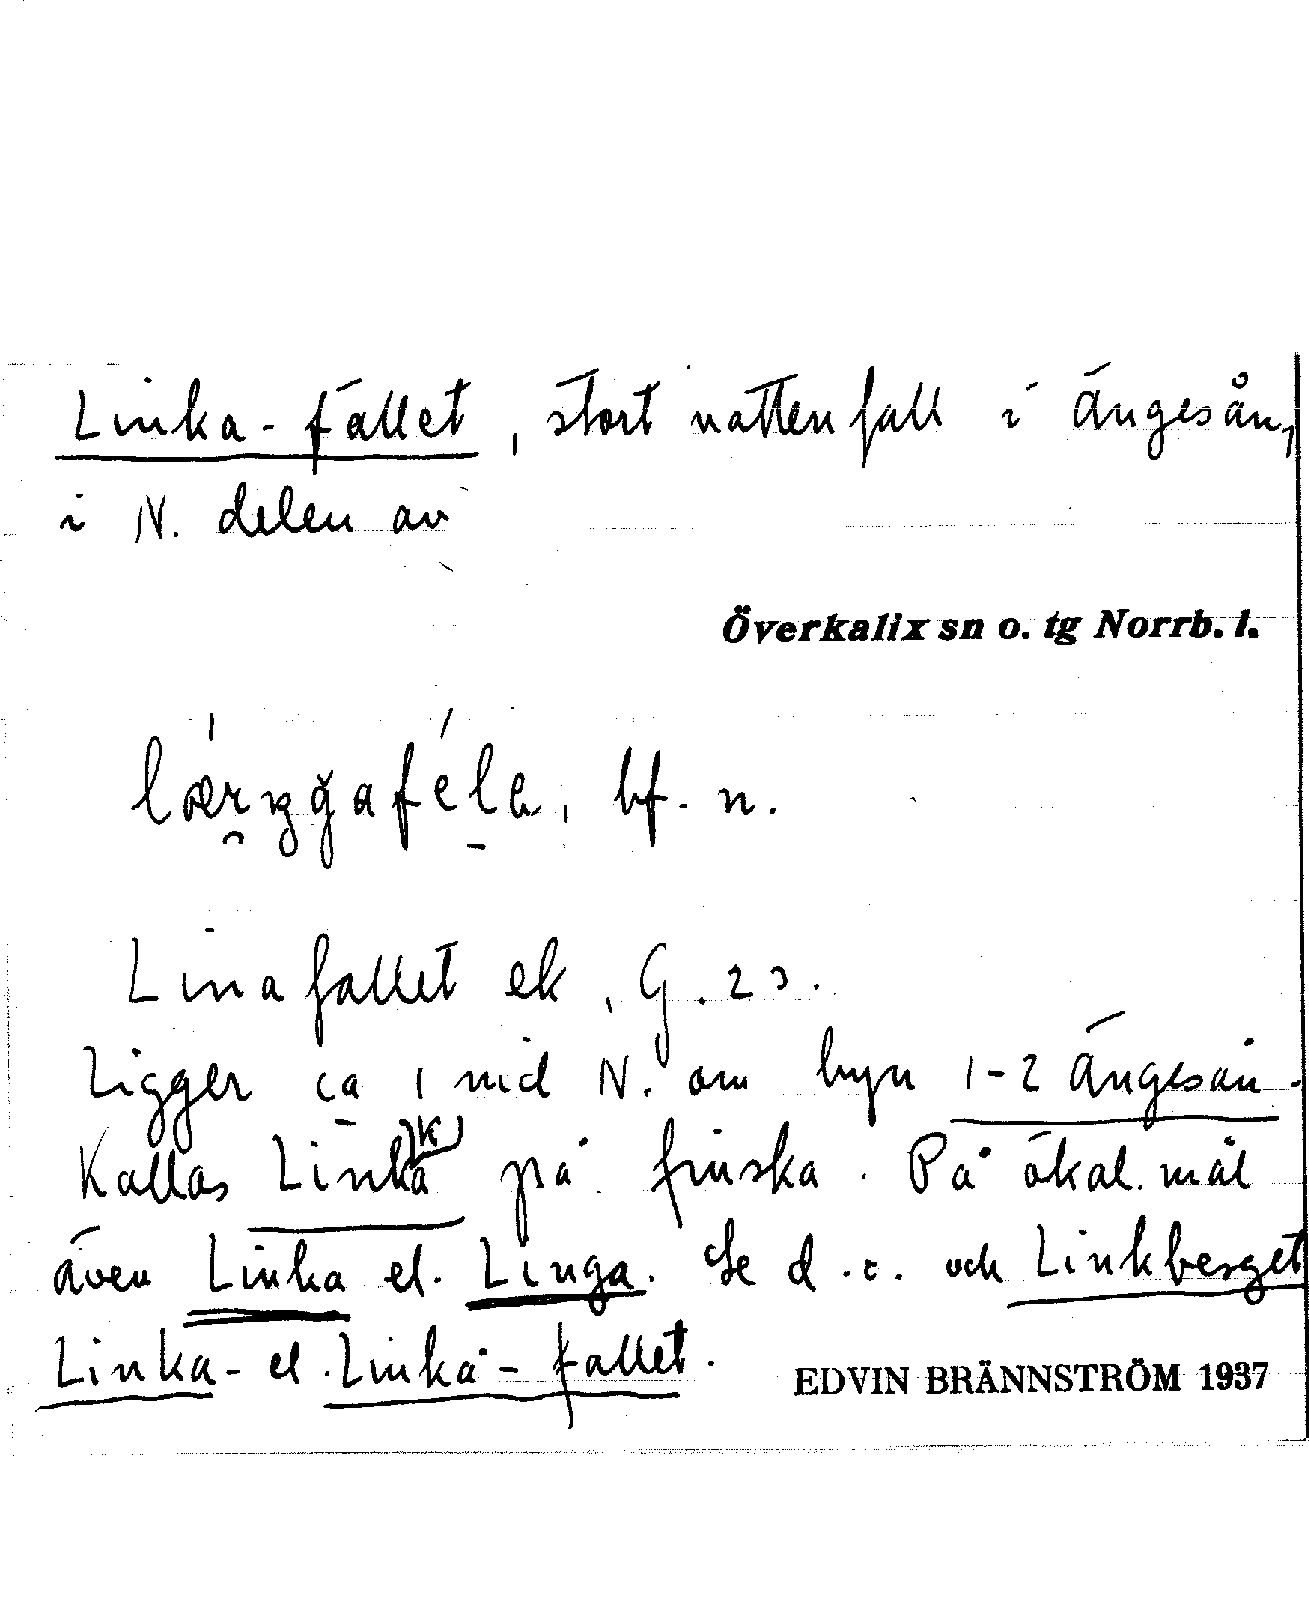 Linka-fallet, stort vattenfall i Ängesån,
i N. delen av
Överkalix sn o. tg Norrb. l.
bf. n.
Linafallet ek, G. 23.
Ligger ca 1 mil N. om byn 1-2 Ängesån.
Kallas Linkå på finska. På ökal. mål
även Linka el. Linga. Se d. o. och Linkberget
Linka- el. Linkå-fallet.
EDVIN BRÄNNSTRÖM 1937